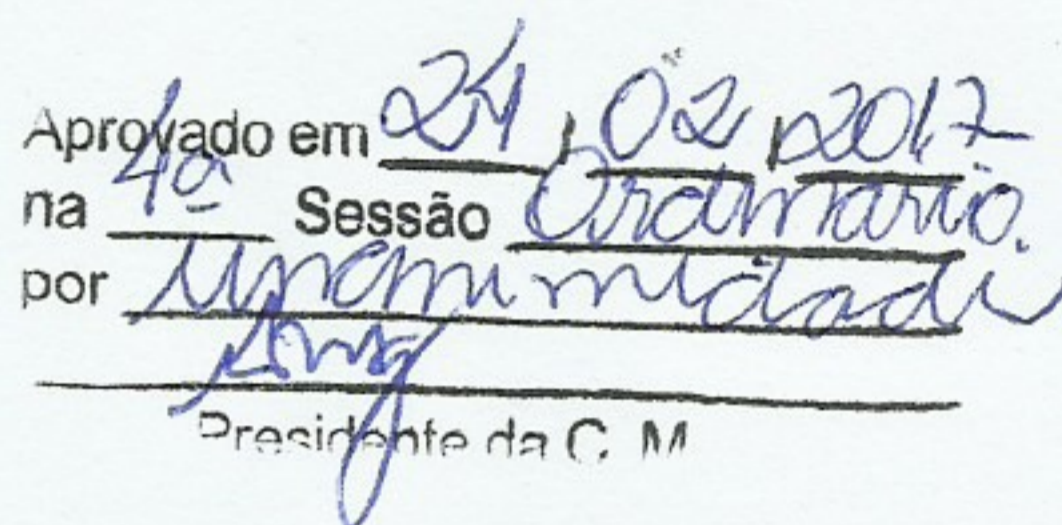 Aprovado em 24/02/2017
na 4ª Sessão Ordinario.
por Unanimidade
Presidente da C. M